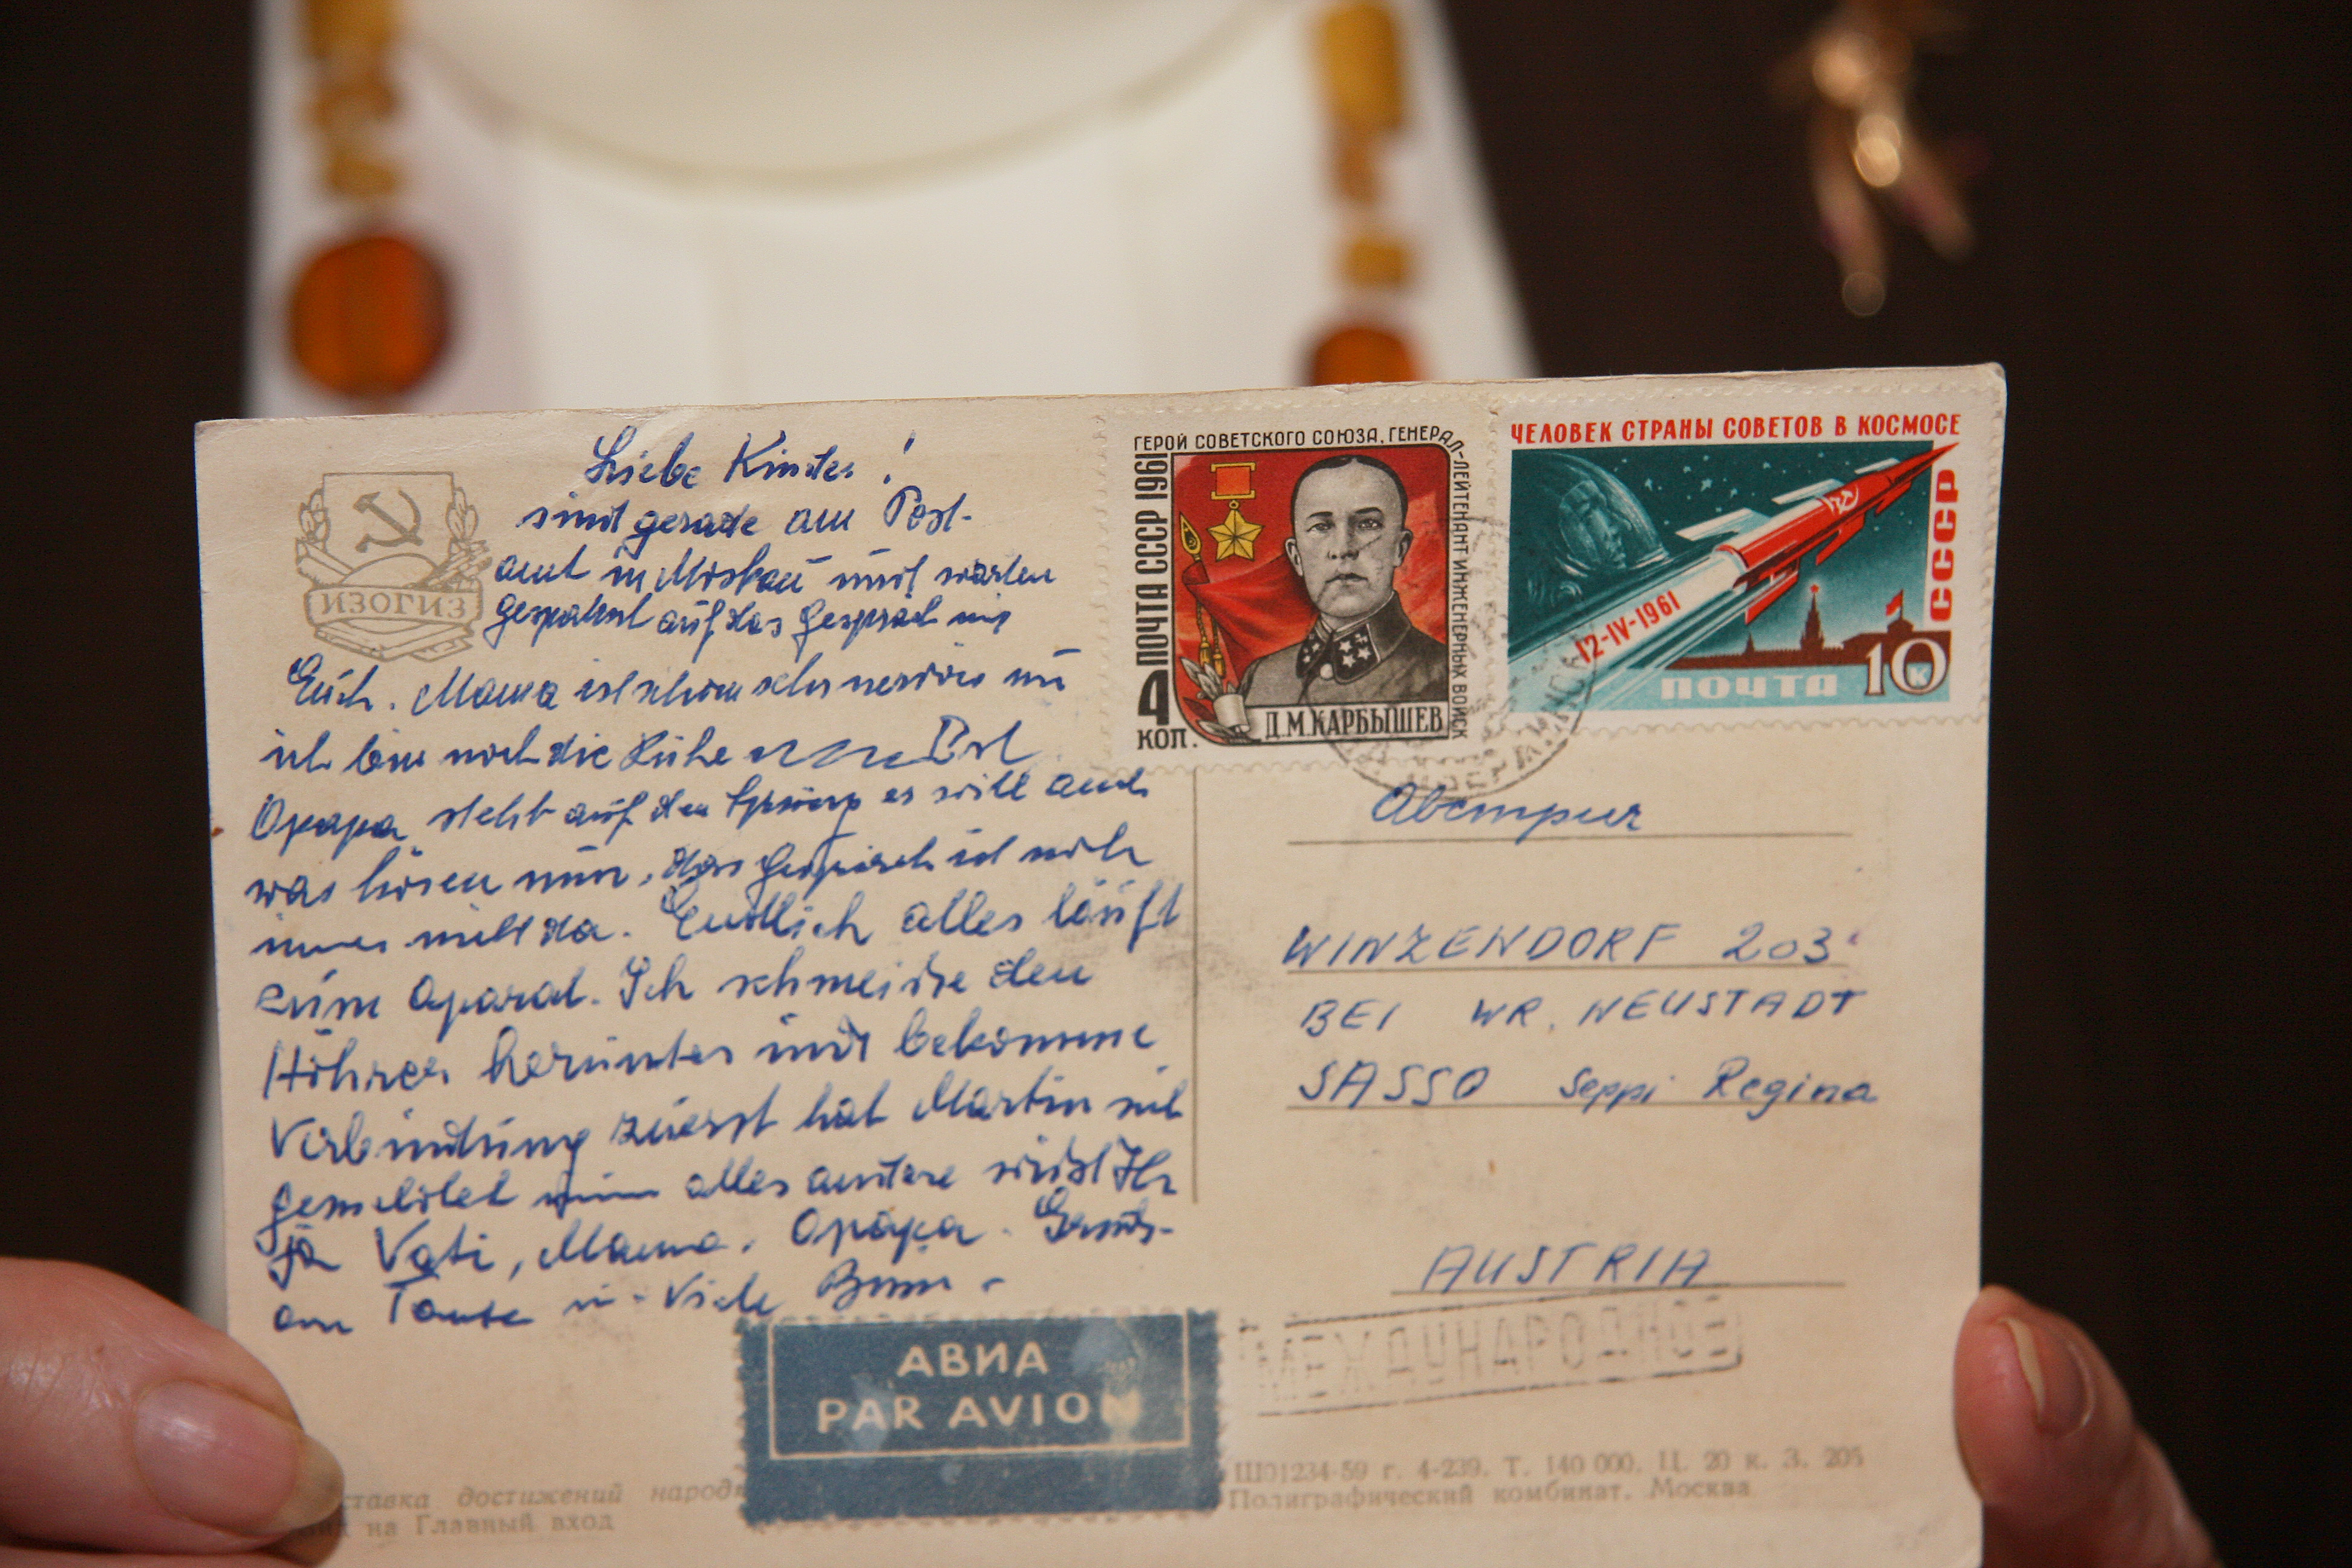 Liebe Kinder!
sind gerade am Post-
amt in Moskau und warten
gespannt auf das Gespräch mit
Euch. Mama ist schon sehr nervös
ich bin noch die Ruhe
Opapa steht auf dem Sprung er will auch
was hören nun, das Gespräch ist noch
immer nicht da. Endlich alles läuft
zum Aparat. Ich schmeisse den
Höhrer herunter und bekomme
Verbindung zuerst hat Martin sich
gemeldet alles andere wisst Ihr
ja Vati, Mama, Opapa.
Tante Viele
ИЗОГИЗ
ГЕРОЙ СОВЕТСКОГО СОЮЗА, ГЕНЕРАЛ-ЛЕЙТЕНАНТ ИНЖЕНЕРНЫХ ВОЙСК
ПОЧТА СССР 1961
4
КОП.
Д.М.КАРБЫШЕВ
ЧЕЛОВЕК СТРАНЫ СОВЕТОВ В КОСМОСЕ
СССР
12-IV-1961
ПОЧТА 10 к
Австрия
WINZENDORF 203
BEI WR. NEUSTADT
SASSO Seppi Regina
AUSTRIA
МЕЖДУНАРОДНОЕ
АВИА
PAR AVION
достижений
на Главный вход
Ш01234-59 г. 4-239. Т. 140 000. Ц. 20 к. З. 205
Полиграфический комбинат. Москва